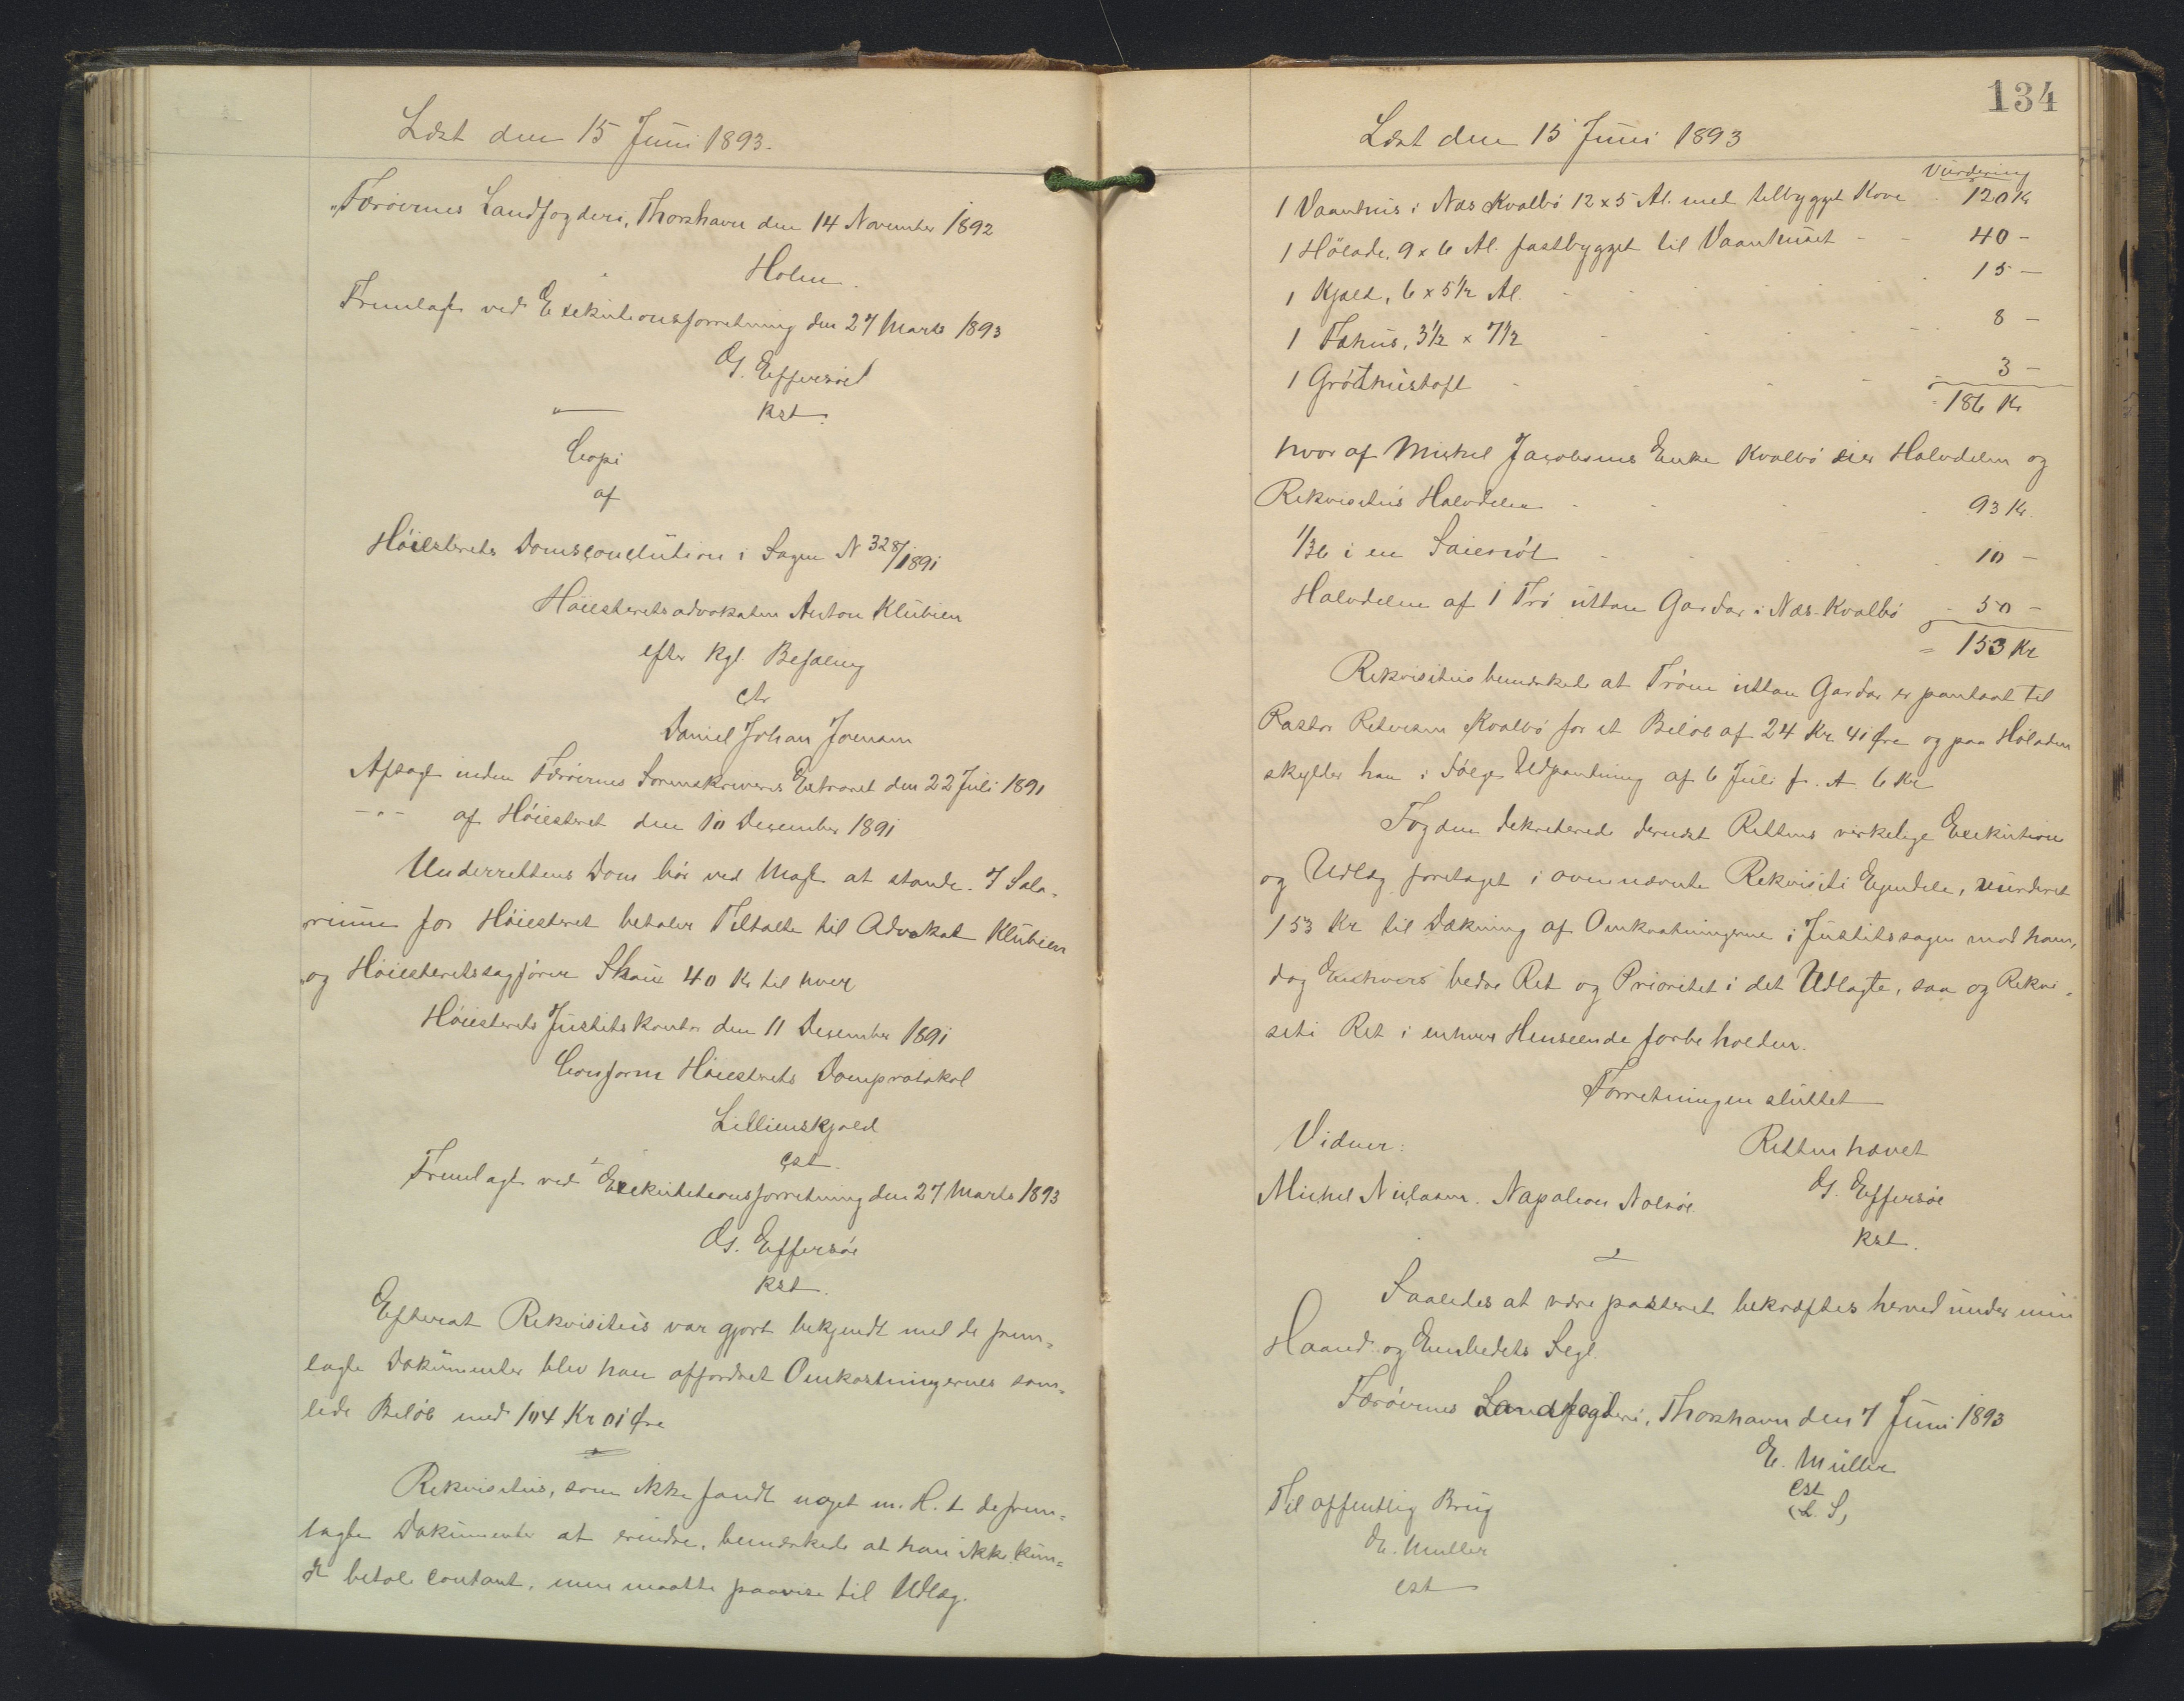 Læst den 15 Juni 1893.
"Færøernes Landfogderi, Thorshavn den 14 November 1892
Holm.
Fremlagt ved Exekutionsforretning den 27 Marts 1893
O. Effersøe
kst.
Copi
af
Høiesterets Domsconclution i Sagen N 328/1891
Høiesteretsadvokaten Anton Klubien
efter Kgl. Befaling
ctr
Daniel Johan Joensen
Afsagt inden Færøernes Sorenskriveris Extraret den 22 Juli 1891
-"- af Høiesteret den 10 December 1891
Underrettens Dom bør ved Magt at stande. I Sala-
rium for Høiesteret betaler Tiltalte til Advokat Klubien
og Høiesteretssagfører Skau 40 Kr til hver
Høiesterets Justitskontor den 11 December 1891
Conform Høiesterets Domprotokol
Lillienskjold
cst.
Fremlagt ved Exekutionsforretning den 27 Marts 1893
O. Effersøe
kst.
Efterat Rekvisitus var gjort bekjendt med de frem-
lagte Dokumenter blev han affordret Omkostningernes sam-
lede Beløb med 104 Kr 01 Øre
Rekvisitus, som ikke fandt noget m. H. t. de frem=
lagte Dokumenter at erindre, bemærkede at han ikke kun=
de betale contant, men maatte paavise til Udlæg.
134
Læst den 15 Juni 1893
Vurdering
1 Vaanhus i Næs Kvalbø 12 x 5 Al. med tilbygget Kove 120 Kr
1 Hølade, 9 x 6 Al. fastbygget til Vaanhuset - - 40 -
1 Kjald, 6 x 5 1/2 Al. 15 -
1 Fæhus, 3 1/2 x 7 1/2 8 -
1 Gróthustoft 3 -
186 Kr
hvor af Michel Jacobsens Enke Kvalbø eier Halvdelen og
Rekvisitus Halvdelen 93 Kr.
1/36 i en Saierót 10 -
Halvdelen af 1 Trø uttan Gardar i Næs-Kvalbø - 50 -
= 153 Kr
Rekvisitus bemærkede at Trøen uttan Gardar er pantsat til
Pastor Petersen Kvalbø for et Beløb af 24 Kr 41 Øre og paa Høladen
skylder han i Følge Udpantning af 6 Juli f. A 6 Kr
Fogden dekreterede dernæst Rettens virkelige Exekution
og Udlæg foretaget i ovennævnte Rekvisiti Eiendele, vurderet
153 Kr til Dækning af Omkostningerne i Justitssagen mod ham,
dog Enhvers bedre Ret og Prioritet i det Udlagte, saa og Rekvi-
siti Ret i enhver Henseende forbeholden.
Forretningen sluttet
Vidner: Retten hævet
Michel Niclasen. Napoleon Nolsøe. O. Effersøe
kst.
Saaledes at være passeret bekræftes herved under min
Haand og Embedets Segl.
Færøernes Landfogderi, Thorshavn den 7 Juni 1893
E. Müller
cst
(L. S)
Til offentlig Brug
E. Müller
cst